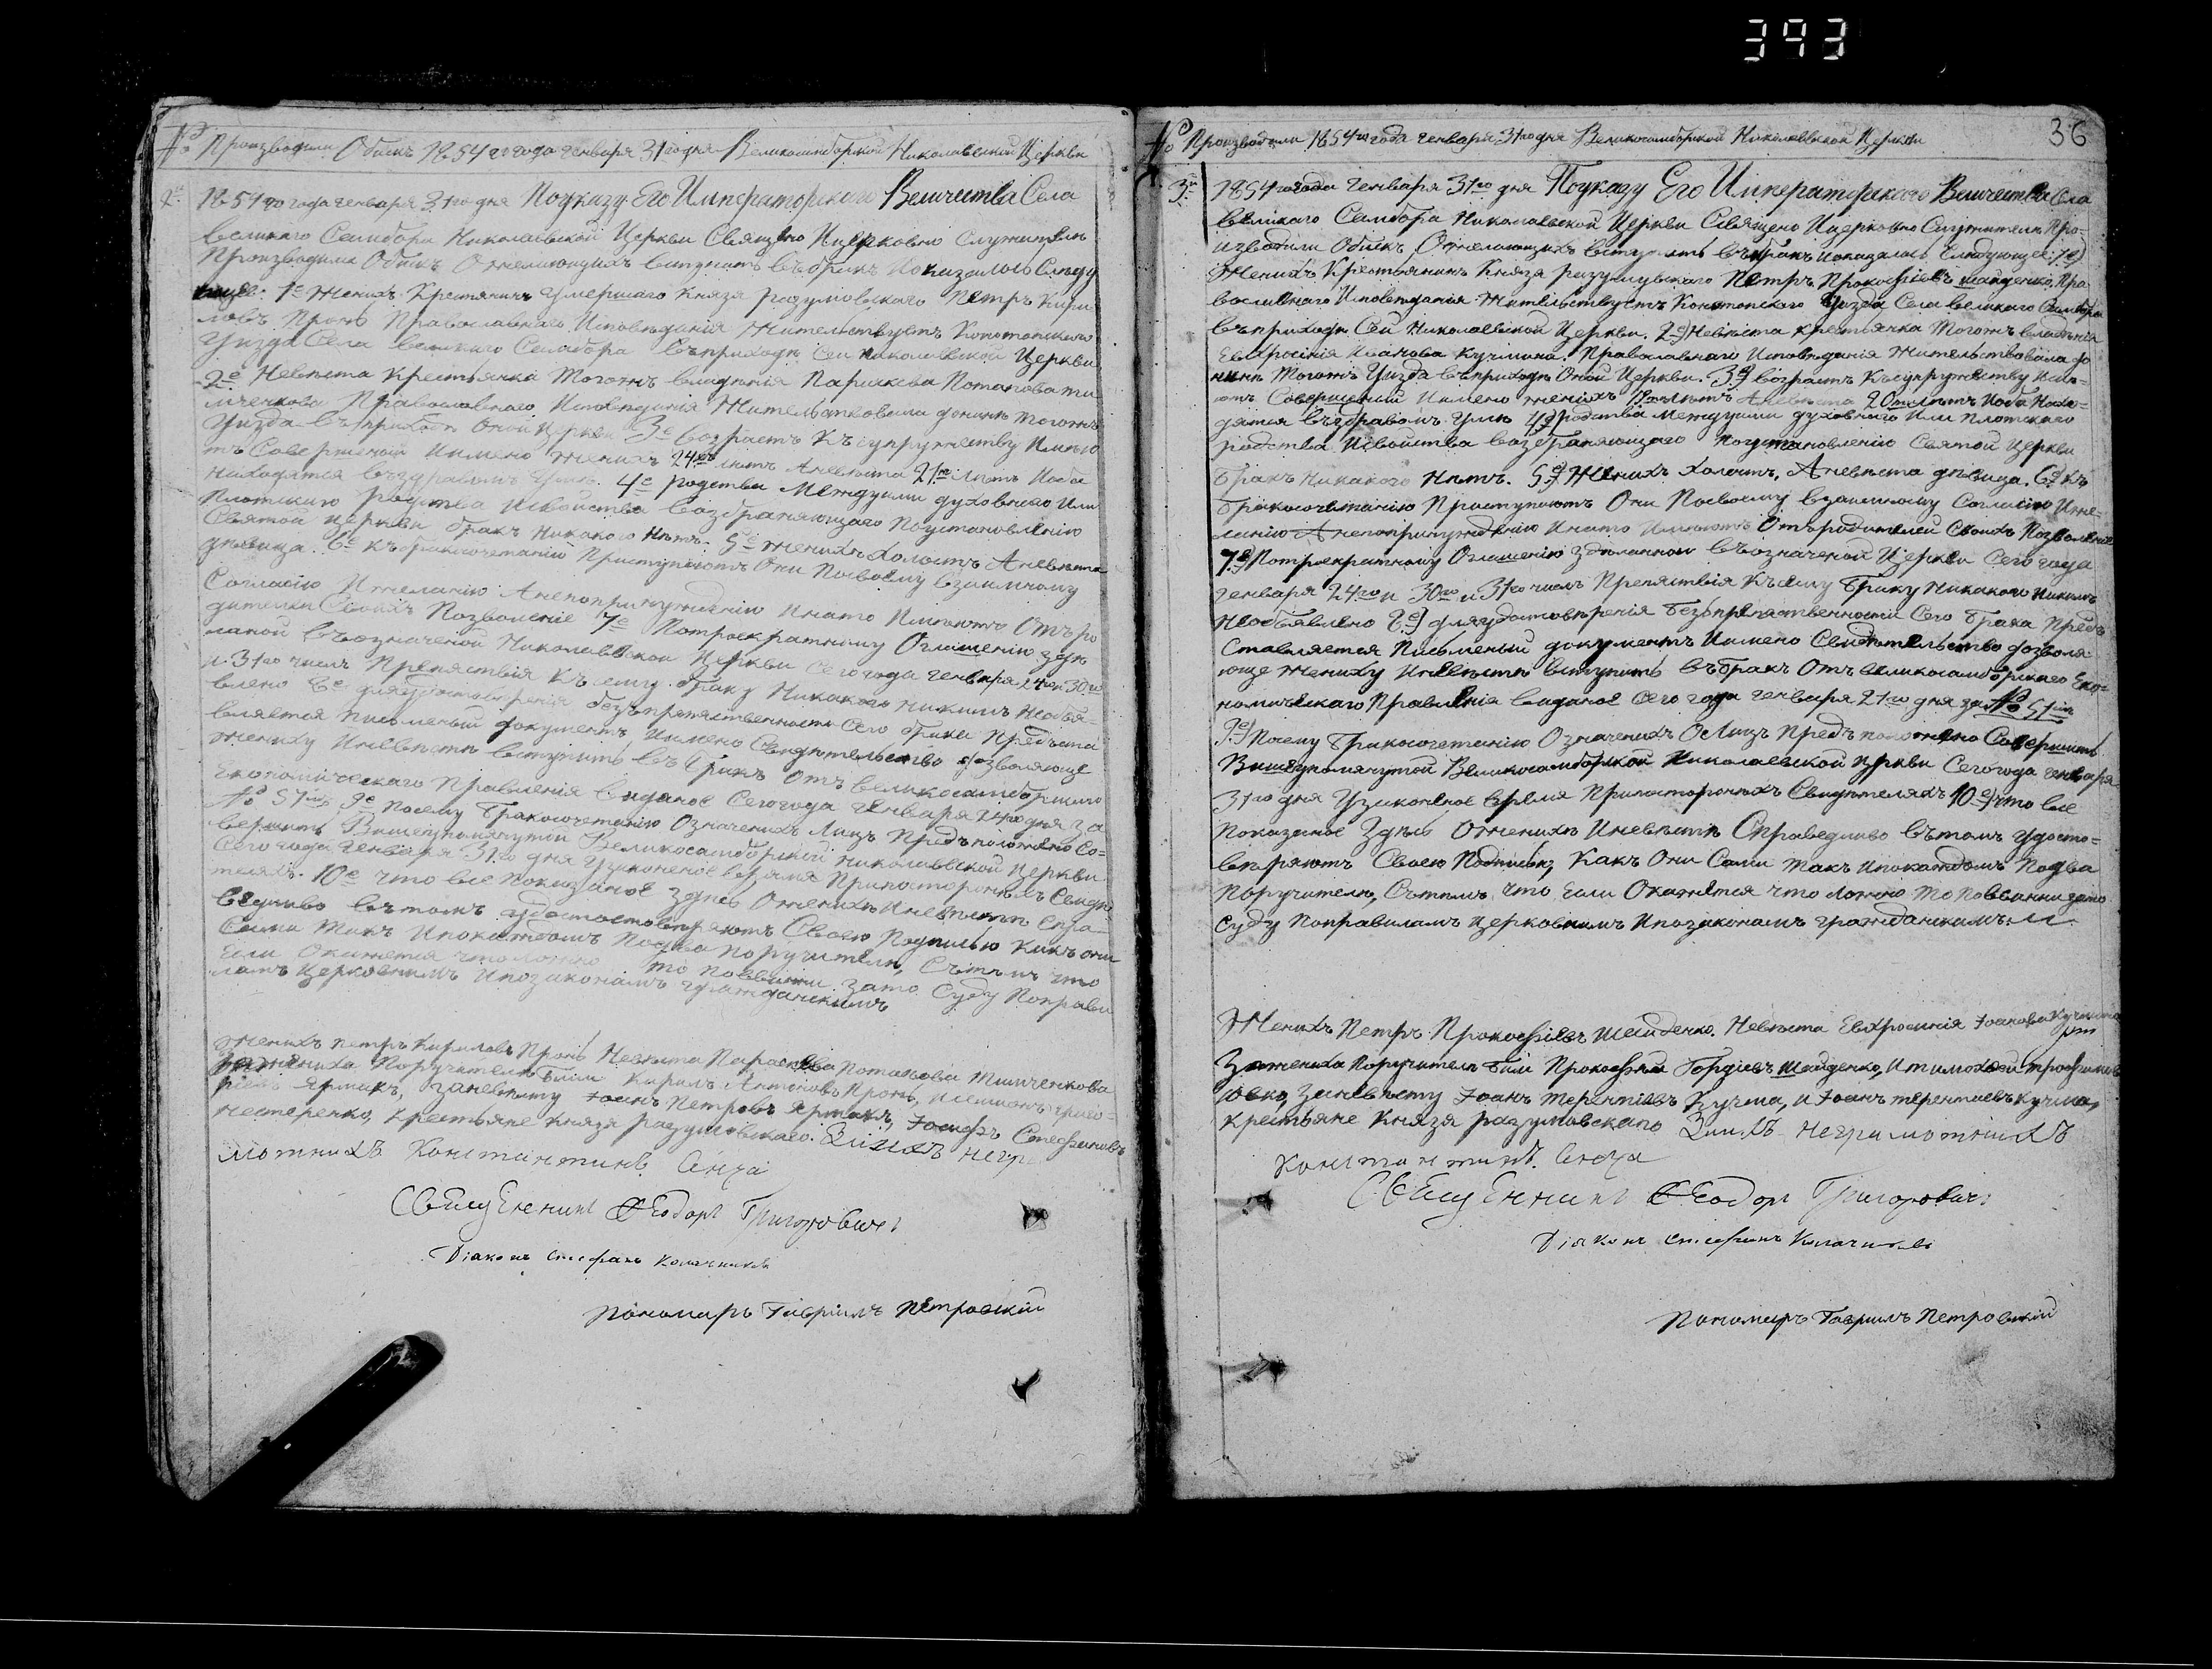 393
№ Производили Обыскъ 1854го года генваря 31го дня Великосамборской Николаевской Церкви
2й. 1854го года генваря 31го дня Поуказу Его Императорскаго Величества Села
великаго Самбора Николаевской Церкви Священо Ицерковно Служители
Производили Обыскъ Ожелающихъ вступить въбракъ Ипоказалось Следу
ющее: 1е Женихъ Крестянинъ умершаго Князя разумовскаго Петръ Кири
ловъ Пронь Православнаго Исповеданія Жительствуетъ Конотопскаго
Уизда Села великаго Самбора въприходѣ Сей Николаевской Церкви
2е Невѣста Крестьянка Тогожъ владѣнія Параскева Потапова ти
мченкова Православнаго Исповеданія Жительствовала донинѣ Тогожъ
Уизда въприходѣ Оной Церкви 3е возрастъ Къ супружеству Имѣю
тъ Совершеный Имено женихъ 24 лѣтъ Аневѣста 21 лѣтъ Иоба
находятся въздравомъ Умѣ. 4е родства Междуими духовнаго Или
Плотскаго родства Исвойства возбраняющаго Поустановлѣнію
Святой церкви бракъ Никакого Нѣтъ. 5е женихъ Холостъ Аневѣста
дѣвица. 6е къбракосочетанію Приступаютъ Они Посвоему взаимному
Согласію Ижеланію Анепопринужденію Инато Имѣютъ Отъро
дителей Своихъ Позволеніе 7е Потроекратному Оглашенію здѣ
ланой въозначеной Николаевской Церкви сего года генваря 24го 30го
и 31го числъ Препятствія Къ сему браку Никакого никимъ Необя-
влено 8е дляудостоверенія безъпрепятственности Сего брака Предъста
вляется Письменый документъ Имено Свидѣтельство дозволяюще
жениху Иневѣсте вступить въ бракъ Отъ великосамборскаго
Економическаго Правленія виданое Сегогода генваря 21го дня за
№ 51 9е Посему Бракосочетанію Означенихъ Лицъ Предъположено Со-
вершить Ввишеупомянутой Великосамборской Николаевской Церкви
Сего года генваря 31го дня узаконеное время Припосторонихъ Свидѣ
теляхъ. 10е что все Показаное здѣсь Ожениху Иневѣсте Спра-
ведливо въ томъ удостовѣряютъ Своею Подписью Какъ они
Сами Такъ Ипокаждомъ Подва Поручителя, Сътѣмъ что
Если Окажется что ложно То Повинни зато Суду Поправи
ламъ Церковнимъ Ипозаконамъ гражданскимъ
Женихъ петръ Кириловъ Пронь Невѣста Параскева Потапова Тимченкова
Зажениха Поручители Били Кирилъ Антоновъ Пронь, Исимонъ григо-
ріевъ Ярмакъ, заневѣсту Іоанъ Петровъ Ярмакъ, Іосифъ Стефановъ
нестеренко, Крестьяне Князя разумовскаго. Заихъ негра
мотнихъ Константинъ Сенча
Священникъ Ѳеодоръ Григоровичъ
Діаконъ Стефанъ Колачникъ
Пономарь Гавріилъ Петровскій
36
№ Производили 1854го года генваря 31го дня Великосамборской Николаевской Церкви
3й. 1854го года генваря 31го дня Поуказу Его Императорскаго Величества Села
великаго Самбора Николаевской Церкви Священо Ицерковно Служители Про-
изводили Обыскъ Ожелающихъ вступить въбракъ Ипоказалось Следующее: 1е)
Женихъ Крестьянинъ Князя разумувскаго Петръ Прокофіевъ шайденко, Пра
вославнаго Исповеданія Жительствуетъ Конотопскаго Уизда Села великаго Самбора
въприходѣ Сей Николаевской Церкви. 2е) Невѣста Крестьянка Тогожъ владѣнія
Евфросинія Иванова Кучмина. Православнаго Исповѣданія Жительствовала до
нинѣ Тогожъ Уизда въприходѣ Оной Церкви. 3е) возрастъ Късупружеству Имѣ-
ютъ Совершеный Имено женихъ лѣтъ Аневѣста 20ти лѣтъ Иоба Нахо-
дятся въздравомъ Умѣ 4е) родства Междуими духовнаго Или Плотскаго
родства Исвойства возбраняющаго Поустановленію Святой Церкви
Бракъ Никакого Нѣтъ. 5е) Женихъ Холостъ, Аневѣста дѣвица. 6е) Къ
Бракосочетанію Приступаютъ Они Посвоему взаимному Согласію Иже-
ланію Анепопринужденію Инато Имѣютъ Отъродителей Своихъ Позволеніе
7е) Потроекратному Оглашенію зделанном въозначеной Церкви Сего года
генваря 24го и 30го и 31го числъ Препятствія Късему Браку Никакого Никимъ
Необъявлено 8е) дляудостовѣренія Безъпрепятственности Сего Брака Предъ
Ставляется Письменый документъ Имено Свидѣтельство дозволя
юще жениху Иневѣсте вступить въбракъ Отъ великосамборскаго Еко-
номическаго Правленія виданое Сего года генваря 21го дня за № 51
9е) Посему Бракосочетанію Означенихъ Лицъ Предъположено Совершить
Ввишеупомянутой Великосамборской Николаевской церкви Сегогода генваря
31го дня Узаконеное время Припосторонихъ Свидѣтеляхъ 10е) что все
Показаное Здѣсь Оженихѣ Иневѣстѣ Справедливо вътомъ удосто-
вѣряютъ Своею Подписью, Какъ Они Сами Такъ Ипокаждомъ Подва
Поручителя, Сътѣмъ что Если Окажется что ложно То Повинни зато
Суду Поправиламъ Церковнимъ Ипозаконамъ гражданскимъ.
Женихъ Петръ Прокофіевъ Шайденко. Невѣста Евфросинія Іоанова Кучмина
Зажениха Поручители Били Прокофий Гордіевъ Шайденко, Итимофей трофимов
заневѣсту Іоанъ Терентіевъ Кучма, и Іоанъ терентиевъ Кучма,
Крестьяне Князя разумовскаго Заихъ неграмотнихъ
Константинъ. Сенча
Священникъ Ѳеодоръ Григоровичъ
Діяконъ Стефанъ Колачникъ
Пономарь Гавриилъ Петровский